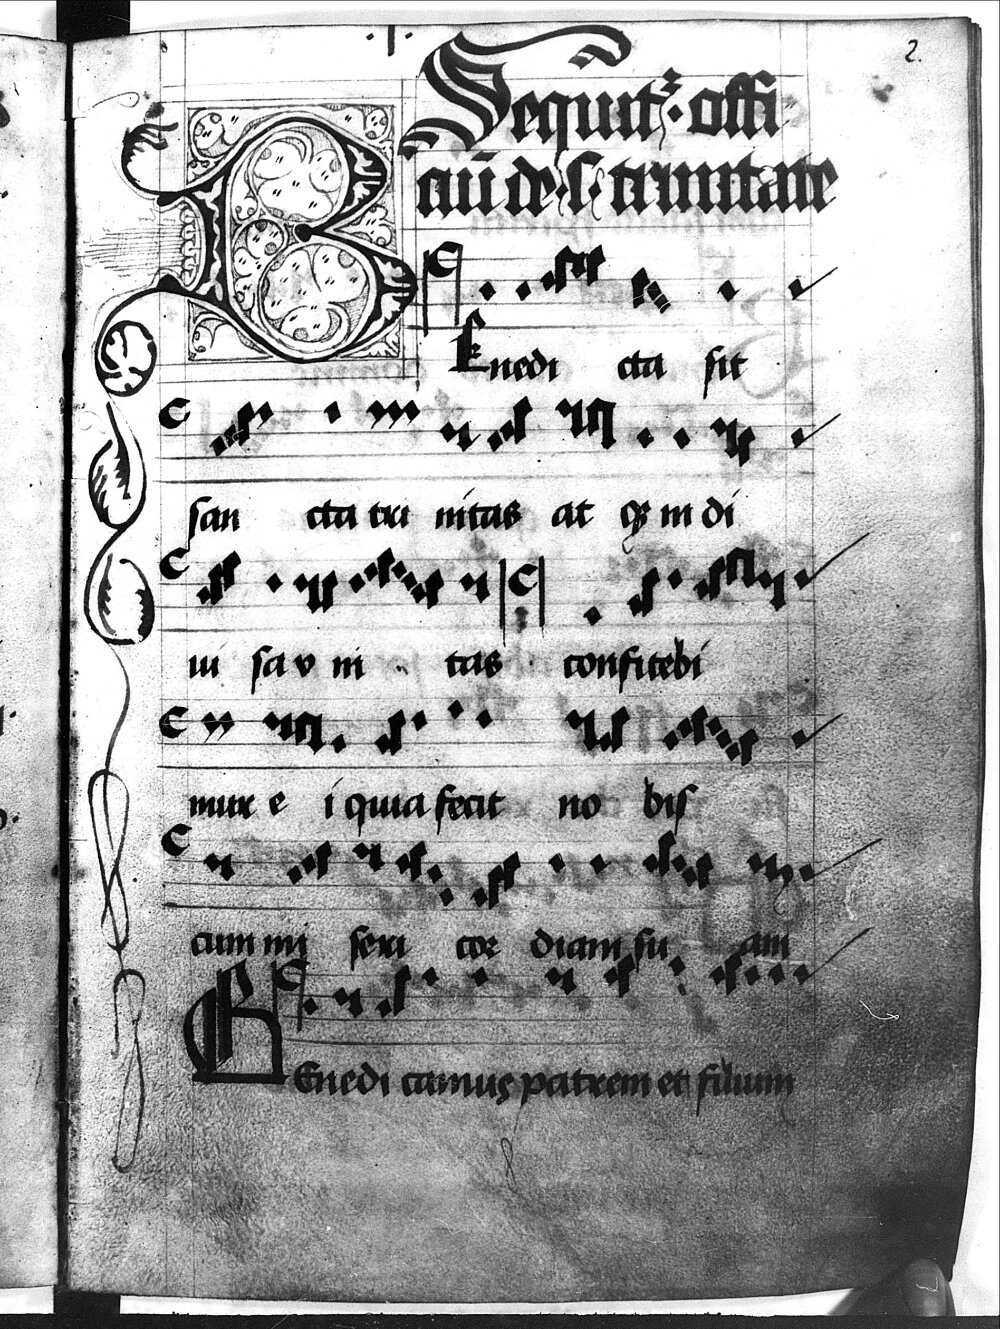 ·I· 2.
Sequit᷑· offi
ciū de· s· trinitate
BEnedi cta sit
san cta tri nitas at qȝ in di
ui sa v ni tas confitebi
mur e i quia fecit no bis
cum mi seri cor diam su am
BEnedi camus patrem et filium